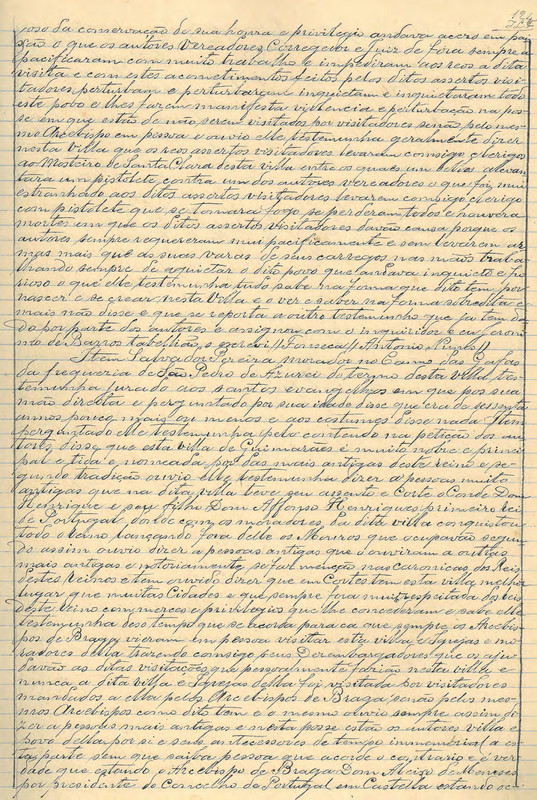 roso da conservação da sua honra e privilegio andava acezo em pai
xão o que os autores Vereadores, Corregedor e Juiz de Fora sempre a
pacificaram com muito trabalho e impediram aos reos a dita
visita e com estes acometimentos feitos pelos ditos assertos visi
tadores, perturbam e perturbaram inquietam e inquietaram todo
este povo e lhes fazem manifesta violencia e perturbação na pos-
se em que estão de não serem visitados por visitadores senão pelo mes-
mo Arcebispo em pessoa e ouvio elle testemunha geralmente dizer
nesta villa que os reos assertos visitadores levaram comsigo clerigos
ao Mosteiro de Santa Clara desta villa entre os quaes um delles alevan
tara um pistolete contra um dos autores vereadores o que foi mui
estranhado aos ditos assertos visitadores levarem comsigo clerigo
com pistolete que se tomara fogo se perderam todos e houvera
mortes em que os ditos assertos visitadores davão causa porque os
autores sempre requereram mui pacificamente e sem levarem ar
mas mais que as suas varas de seus carregos nas mãos traba
lhando sempre de aquietar o dito povo que andava inquieto e fu
rioso o que elle testemunha tudo sabe na forma que dito tem por
nascer e se crear nesta Villa e o ver e saber na forma sobredita e
mais não disse e que se reporta a outro testemunho que já tem da
do por parte dos autores e assignou com o inquiridor e eu Jeroni
mo de Barros tabellião, o escrevi // Fonseca // Antonio Nunes //
Item Salvador Pereira morador no
da freguezia de São Pedro de Azurei do termo desta villa, tes-
temunha jurado aos santos evangelhos em que pos sua
mão direita e perguntado por sua idade disse que era de sessenta
annos pouco mais ou menos e aos costumes disse nada. Item
perguntado elle testemunha pelo conteudo na petição dos au
tores, disse que esta villa de Guimarães é muito nobre e princi
pal e tida e nomeada por das mais antigas deste reino e se-
gundo tradição ouvio elle testemunha dizer a pessoas muito
antigas que na dita villa teve seu assento e Corte o Conde Dom
Henrique e seu filho Dom Affonso Henriques primeiro rei
de Portugal, donde com os moradores da dita villa conquistou
todo o reino lançando fora delle os Mouros que o cupavão segun
do assim ouvio dizer a pessoas antigas que o ouviram a outras
mais antigas e notoriamente se faz menção nas caronicas dos Reis
destes Reinos e tem ouvido dizer que em Cortes tem esta villa melhor
lugar que muitas Cidades e que sempre fora mui respeitada dos reis
deste reino com merces e privilegios que lhe concederam e sabe elle
testemunha des o tempo que se acorda para ca que sempre os Arcebis-
pos de Braga vieram em pessoa visitar esta villa e Igrejas e mo-
radores della trazendo comsigo seus Dezembargadores que os aju-
davão as ditas visitações que pessoalmente farião nesta villa e
nunca a dita villa e Igrejas della foi visitada por visitadores
mandados a ella pelos Arcebispos de Braga, senão pelos mes-
mos Arcebispos como dito tem e o mesmo ouvio sempre assim di-
zer a pessoas mais antigas e nesta posse estão os autores villa e
povo della por si e seus antecessores de tempo immemorial a es-
ta parte sem que saiba pessoa que acorde o contrario e é ver-
dade que estando o Arcebispo de Braga Dom Aleixo de Menezes
por presidente do Concelho de Portugal em Castella estando oc-